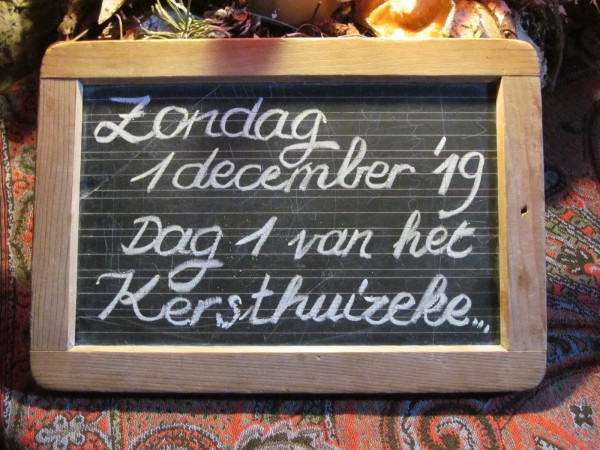 Zondag
1 december '19
Dag 1 van het
Kersthuizeke...